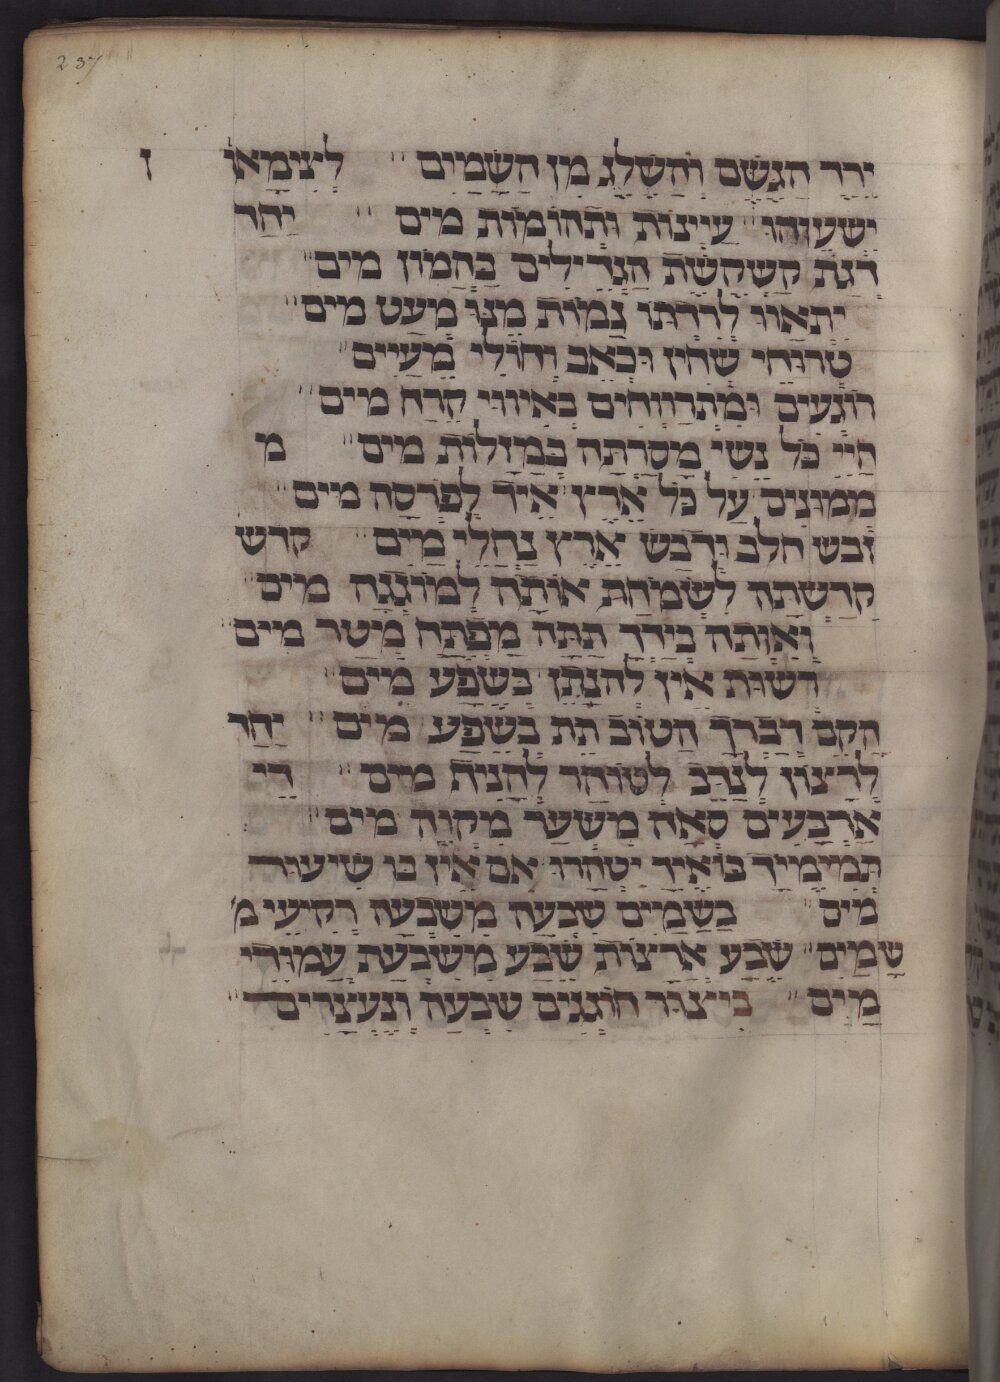 237
יֵרֵד הַגֶּשֶׁם וְהַשֶּׁלֶג מִן הַשָּׁמַיִם לְצִימָאוֹן
יְשַׁעְוֵהוּ עֲיָינוֹת וּתְהוֹמוֹת מים יַחַד
רִגַת קַשְׂקֶשֶׂת הַגְּדִילִים בַּהֲמוֹן מים
יִתְאַוּוּ לְרִדְתּוֹ גְמוֹת מֶנּוּ מְעַט מים
טְרוּחֵי שְׁחִין וּכְאֵב וְחוֹלֵי מֵעַיִים
רוֹגְעִים וּמִתְרַוְּוחִים כְּאִיוּוּי קֹרַח מים
חַיֵּי כָּל נֶשִׁי מָסַרְתָּה בְּמַזָּלוֹת מים מ
מְמוּנִים עַל כָּל אֶרֶץ אֵיךְ לְפָרְסָה מים
זָבַשׁ חלב וּדְבַשׁ אֶרֶץ נַחֲלֵי מַיִם קדש
קִדַּשְׁתָּהּ לְשַׂמְּחַת אוֹתָהּ לְמוֹגְגָהּ מים
וְאוֹתָהּ בְּיָדְךָ תִּתָּהּ מַפְתֵּחַ מְיטַר מים
רְשׁוּת אֵין לְהִנָּתֵן בְּשֶׁפַע מים
הָקֵם דְּבָרְךָ הַטּוֹב תֵּת בְּשֶׁפַע מים יַהַד
לְרָצוֹן לְנִרְב לְטוֹהַר לְהָנִית מים דֵי
אַרְבָּעִים סְאָה מְשַׁעֵר מִקְוֵה מים
תְּמִימֶיךָ בּוֹ אֵיךְ יִטְהֲרוּ אִם אֵין בּוֹ שִׁיעוּר
מים בַּשָּׁמַיִם שִׁבְעָה מִשִּׁבְעָה רְקִיעֵי מ
שָׁמַיִם שֶׁבַע אֲרָצוֹת שֶׁבַע מִשִּׁבְעַת עַמּוּדֵי
מַיִם בְּיִצּוּר חוֹגְגִים שִׁבְעָה וְנֶעֱצָרִים